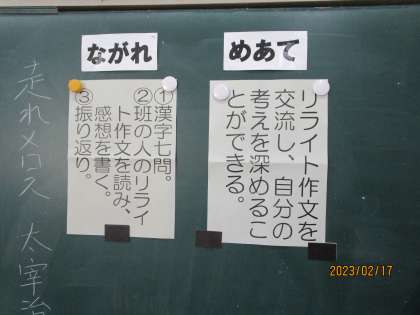 めあて
リライト作文を
交流し、自分の
考えを深めるこ
とができる。
ながれ
①漢字七問。
②班の人のリライ
ト作文を読み、
感想を書く。
③振り返り。
走れメロス 太宰治
2023/02/17